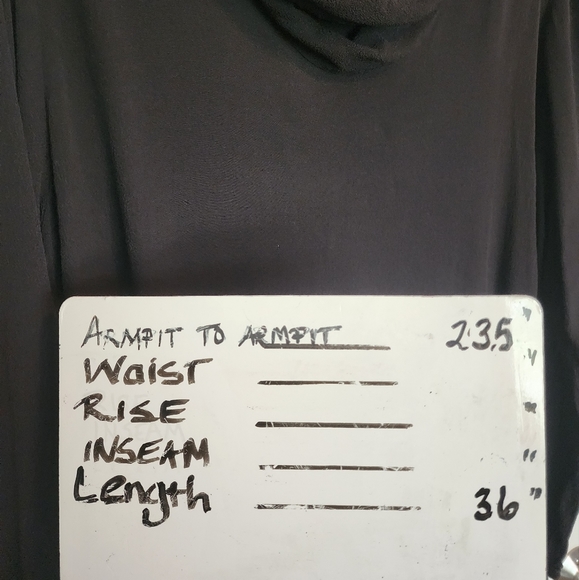 ARMPIT TO ARMPIT 23.5"
Waist "
RISE "
INSEAM "
Length 36"